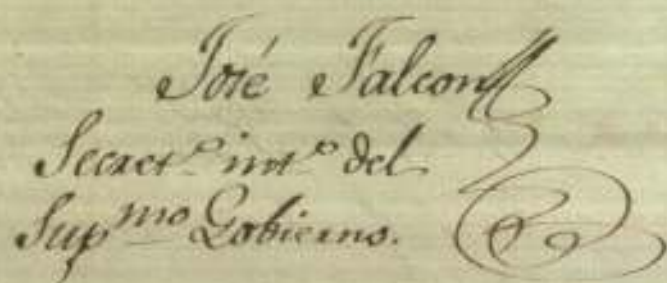 José Falcon
Secret.º int.º del
Sup.mo Gobierno.